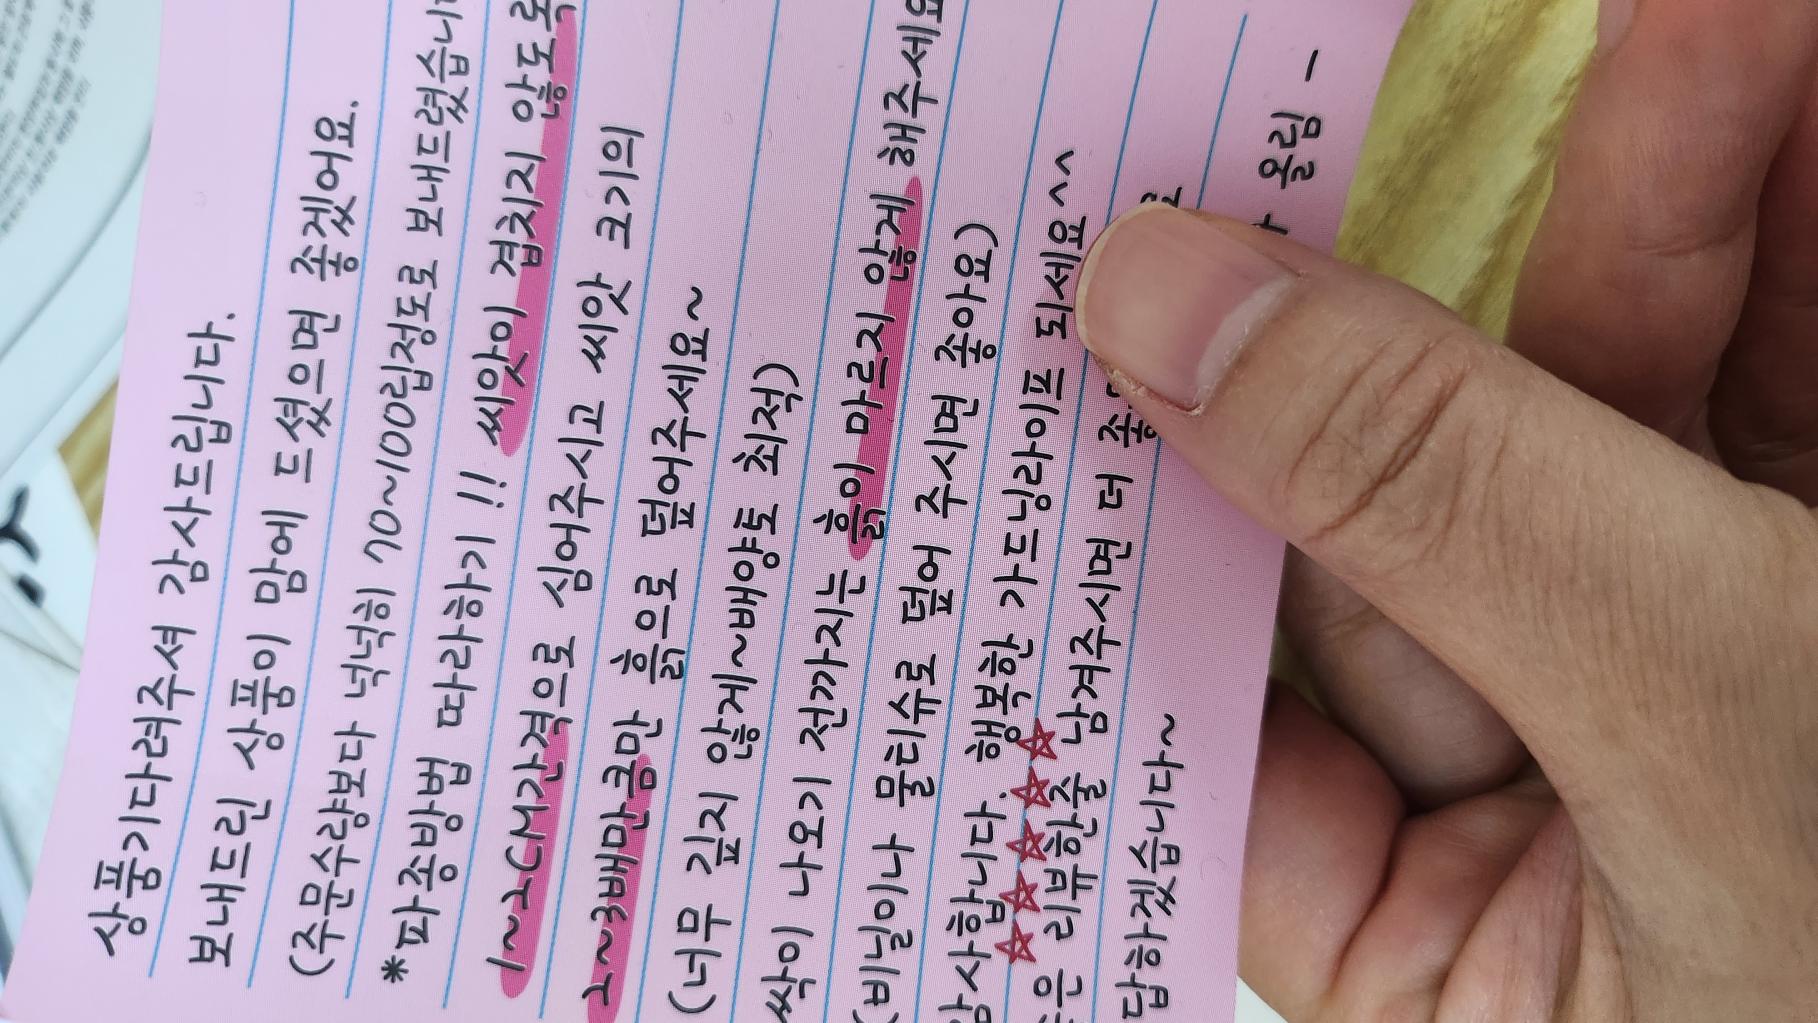 상품기다려주셔 감사드립니다.
보내드린 상품이 맘에 드셨으면 좋겠어요.
(주문수량보다 넉넉히 70~100립정도로 보내드렸습니
*파종방법 따라하기!! 씨앗이 겹치지 않도록
1~2CM간격으로 심어주시고 씨앗 크기의
2~3배만큼만 흙으로 덮어주세요~
(너무 깊지 않게~배양토 최적)
싹이 나오기 전까지는 흙이 마르지 않게 해주세요
(비닐이나 물티슈로 덮어 주시면 좋아요)
감사합니다. 행복한 가드닝라이프 되세요^^
☆☆☆☆☆
좋은 리뷰한줄 남겨주시면 더
답하겠습니다~
올림 -